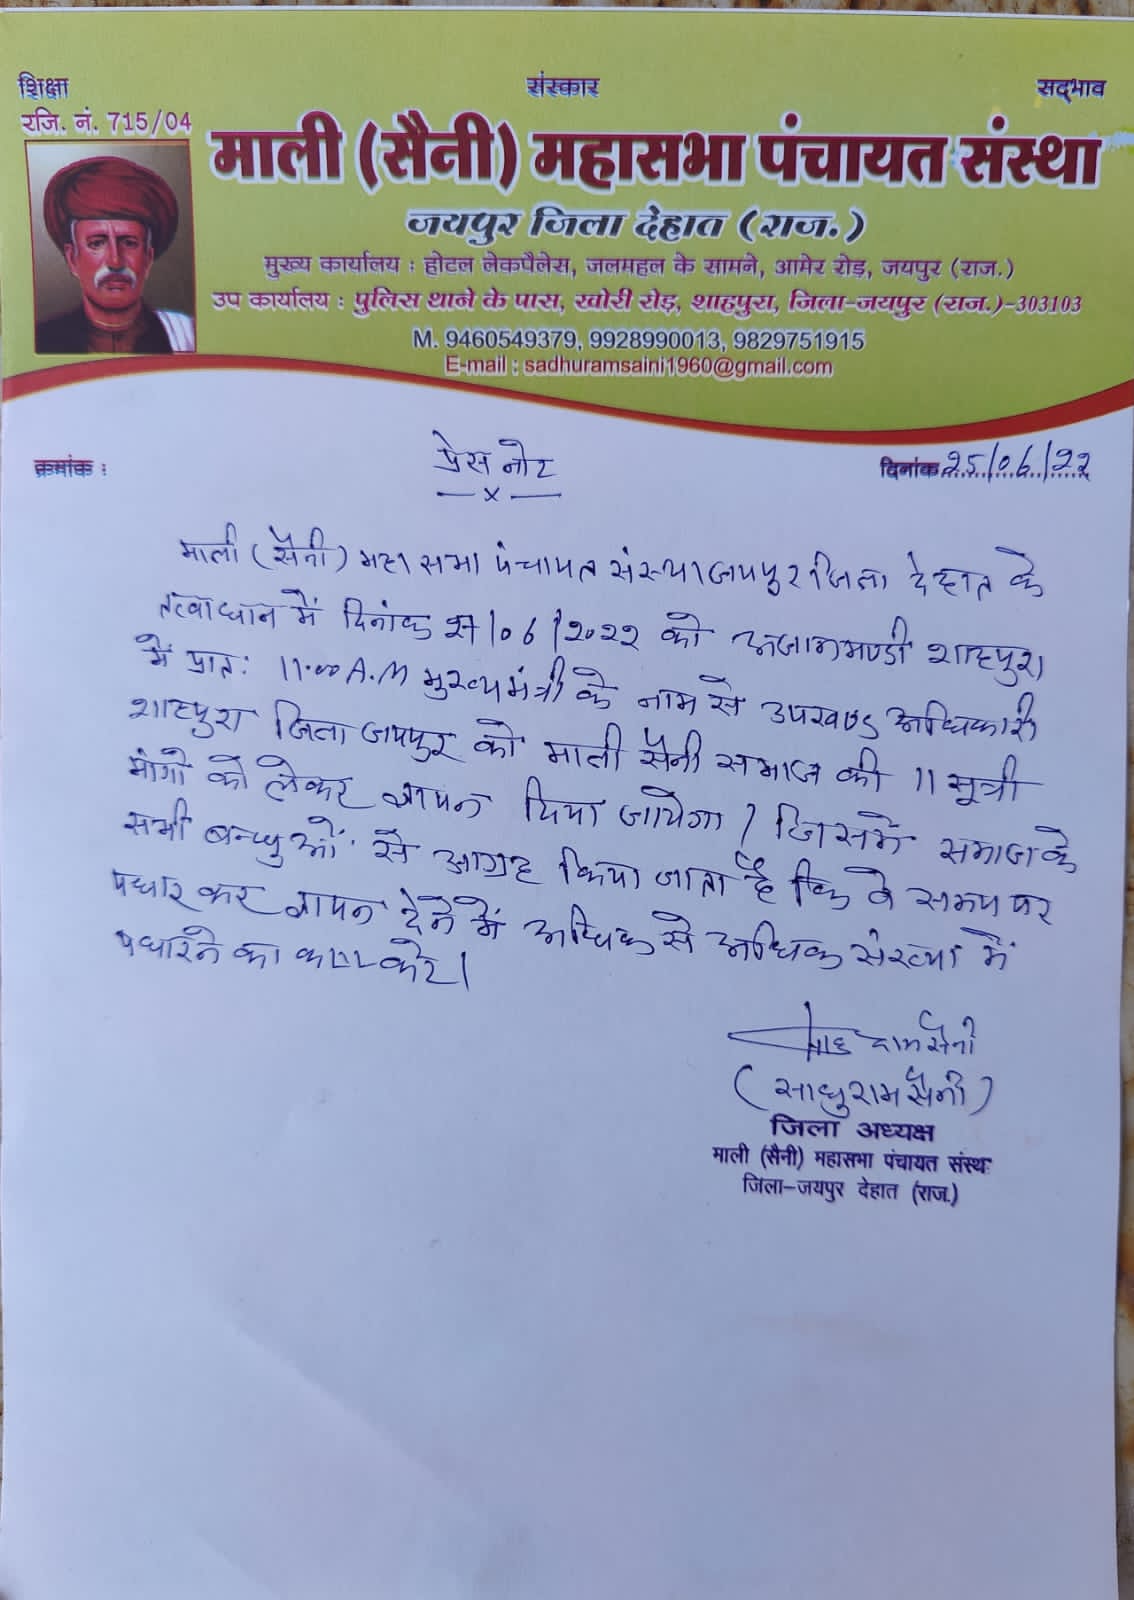 शिक्षा संस्कार सद्भाव
रजि. नं. 715/04
माली (सैनी) महासभा पंचायत संस्था
जयपुर जिला देहात (राज.)
मुख्य कार्यालय : होटल लेकपैलेस, जलमहल के सामने, आमेर रोड़, जयपुर (राज.)
उप कार्यालय : पुलिस थाने के पास, खोरी रोड़, शाहपुरा, जिला-जयपुर (राज.)-303103
M. 9460549379, 9928990013, 9829751915
E-mail : sadhuramsaini1960@gmail.com
क्रमांक : प्रेस नोट दिनांक 25/06/22
— x —
माली (सैनी) महासभा पंचायत संस्था जयपुर जिला देहात के
तत्वाधान में दिनांक 27/06/2022 को अनाजमण्डी शाहपुरा
में प्रात: 11.00 A.M मुख्यमंत्री के नाम से उपखण्ड अधिकारी
शाहपुरा जिला जयपुर को माली सैनी समाज की 11 सूत्री
मांगों को लेकर ज्ञापन दिया जायेगा। जिसमें समाज के
सभी बन्धुओं से आग्रह किया जाता है कि वे समय पर
पधार कर ज्ञापन देने में अधिक से अधिक संख्या में
पधारने का कष्ट करें।
साधुरामसैनी
(साधुराम सैनी)
जिला अध्यक्ष
माली (सैनी) महासभा पंचायत संस्था
जिला-जयपुर देहात (राज.)